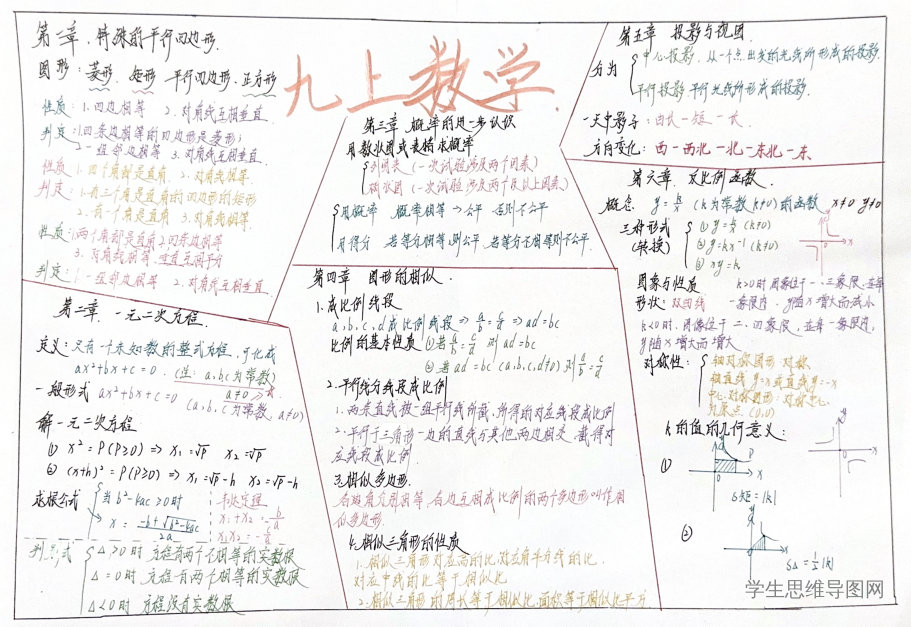 九上数学.
第一章. 特殊的平行四边形.
图形: 菱形. 矩形 平行四边形. 正方形
性质: 1.四边相等 2.对角线互相垂直
判定: 1.四条边相等的四边形是菱形
一组邻边相等 3.对角线互相垂直
性质: 1.四个角都是直角 2.对角线相等.
判定: 1.有三个角是直角的四边形的矩形
2.有一个角是直角 3.对角线相等.
性质: 1.两个角都是直角 2.四条边相等
3.对角线相等.垂直且平分
判定: 1.一组邻边相等 2.对角线互相垂直
第二章. 一元二次方程.
定义: 只有一个未知数的整式方程,可化成
ax²+bx+c=0. (注: a,b,c为常数)
a≠0
一般形式 ax²+bx+c=0 (a,b,c为常数 a≠0)
解一元二次方程
① x²=P(P≥0) => x₁=√P x₂=√P
② (x+h)²=P(P≥0) => x₁=√P-h x₂=√P-h
求根公式 当b²-4ac≥0时
x= -b+√b²-4ac / 2a
韦达定理
x₁+x₂=-b/a
x₁x₂=-c/a
判别式 △>0时 方程有两个不相等的实数根
△=0时 方程有两个相等的实数根
△<0时 方程没有实数根
第三章 概率的进一步认识
用数状图或表格求概率
列图表 (一次试验涉及两个因素)
树状图 (一次试验涉及两个及以上因素)
用概率 概率相等→公平 否则不公平
用得分 若等分相等,则公平,若等分不相等则不公平.
第四章 图形的相似.
1.成比例线段
a,b,c,d成比例线段 => a/b=c/d => ad=bc
比例的基本性质 ①若a/b=c/d 则ad=bc
②若ad=bc (a,b,c,d≠0) 则a/b=c/d
2.平行线分线段成比例
1.两条直线被一组平行线所截,所得的对应线段成比例
2.平行于三角形一边的直线与其他两边相交.截得对
应线段成比例
3.相似多边形.
各边相成比例的两个多边形叫作相
似多边形.
4.相似三角形的性质
1.相似三角形对应高的比,对应角平分线的比.
对应中线的比等于相似比
2.相似三角形的周长等于相似比,面积等于相似比平方
第五章 投影与视图.
分为 中心投影. 从一个点出发的光线所形成的投影.
平行投影 平行光线所形成的投影.
一天中影子: 由长—短—长.
方向变化: 西—西北—北—东北—东
第六章. 反比例函数.
概念. y=k/x (k为常数 k≠0)的函数 x≠0 y≠0
三种形式
(转换)
① y=k/x (k≠0)
② y=kx⁻¹ (k≠0)
③ xy=k
图象与性质 k>0时 图象位于一、三象限,在每
形状: 双曲线 一象限内, y随x增大而减小
k<0时,图像位于二、四象限,在每一象限内,
y随x增大而增大
对称性: 轴对称图形 对称
轴直线y=x或直线y=-x
中心对称图形: 对称中心
原点 (0,0)
k的值的几何意义:
①
S矩=|k|
②
S△=½|k|
学生思维导图网